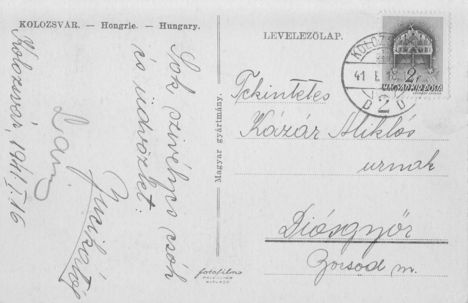 KOLOZSVÁR. — Hongrie. — Hungary.
Kolozsvár, 1941. I. 16
Sok szivélyes csók
és üdvözlet:
Magyar gyártmány.
fotofilm
LEVELEZŐLAP.
KOLOZS
41 I. 16
D 2 D
2f
MAGYAR KIR. POSTA
Tekintetes
Kázár Miklós
urnak
Diósgyőr
Borsod m.